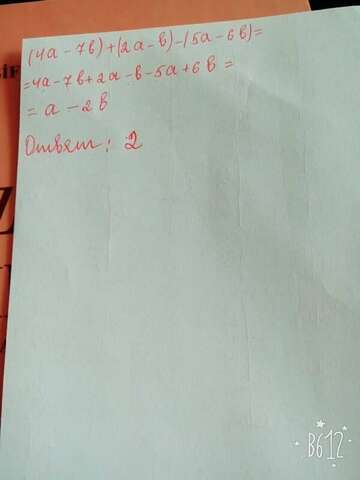 (4a-7b)+(2a-b)-(5a-6b)=
=4a-7b+2a-b-5a+6b=
=a-2b
Ответ: 2
B612